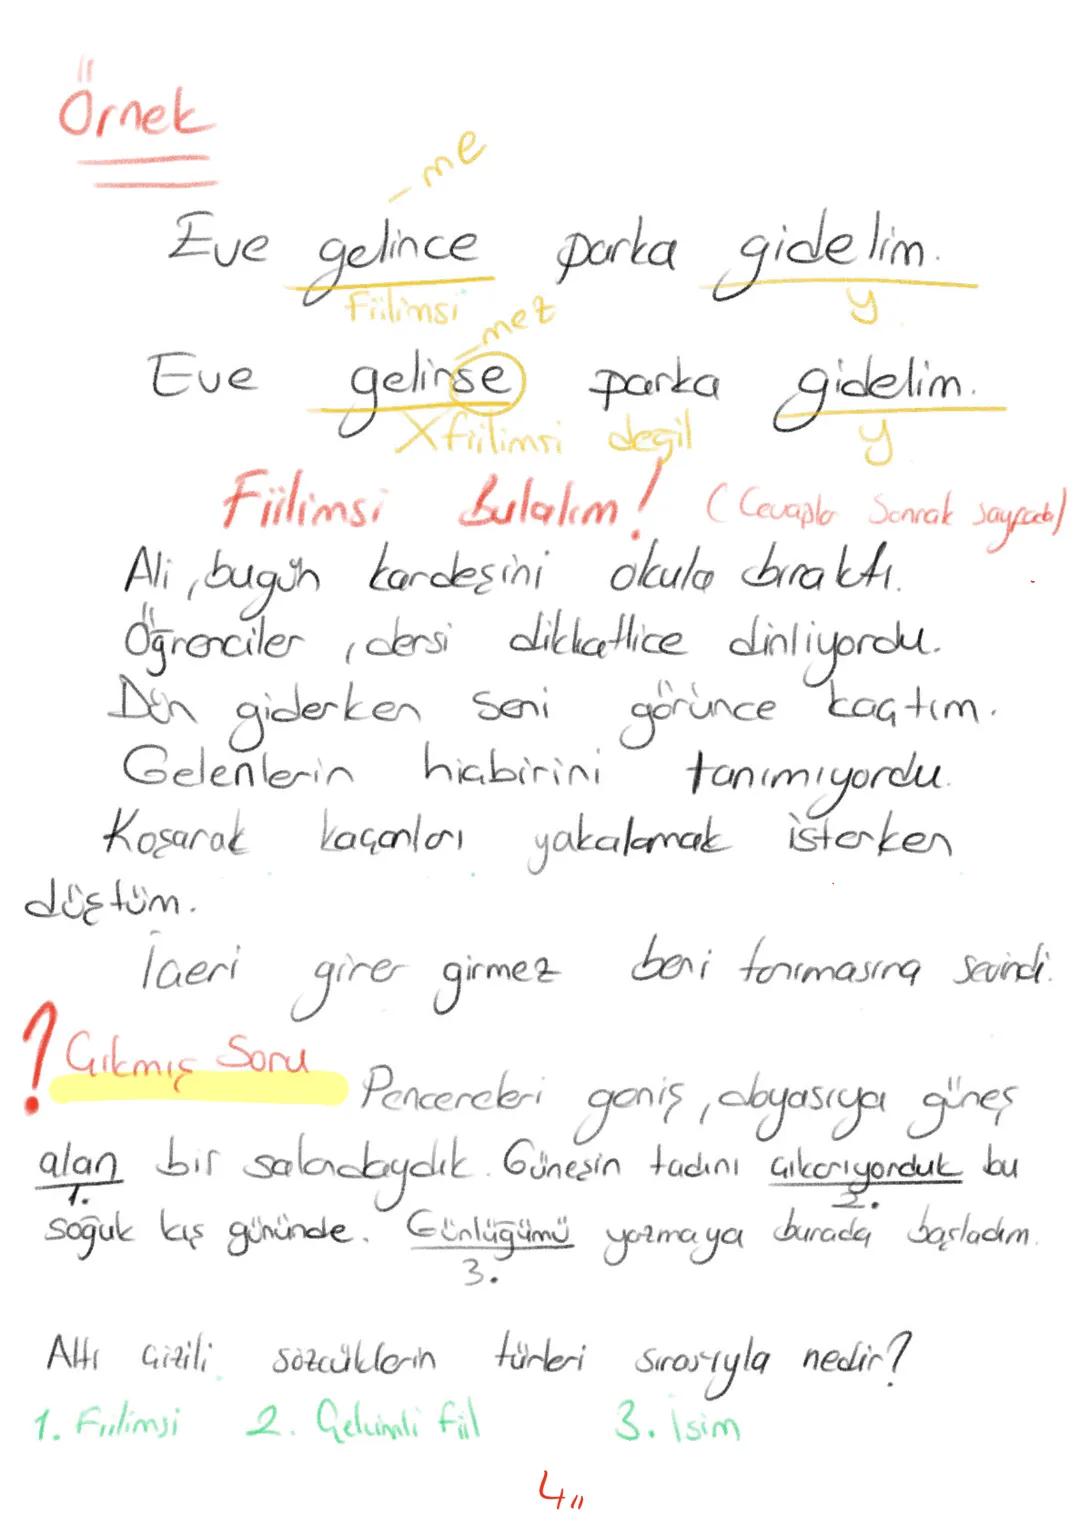 Örnek
-me
Eve gelince parka gidelim.
Fiilimsi y
-mez
Eve gelirse parka gidelim.
X fiilimsi değil y
Fiilimsi Bulalım! (Cevaplar Sonrak sayfada)
Ali, bugün kardeşini okula bıraktı.
Öğrenciler, dersi dikkatlice dinliyordu.
Dün giderken seni görünce kaçtım.
Gelenlerin hiçbirini tanımıyordu.
Koşarak kaçanları yakalamak isterken
düştüm.
İçeri girer girmez beni tanımasına sevindi.
! Çıkmış Soru
Pencereleri geniş, güneş
alan bir salondaydık. Güneşin tadını çıkarıyorduk bu
1. 2.
soğuk kış gününde. Günlüğümü yazmaya burada başladım.
3.
Altı çizili sözcüklerin türleri sırasıyla nedir?
1. Fiilimsi 2. Çekimli fiil 3. İsim
4"